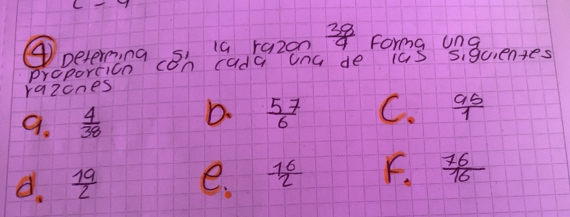 4 Determina si la razon 38/4 forma una
proporción con cada una de las siguientes
razones
a. 4/38 b. 57/6 c. 95/1
d. 19/2 e. 16/2 F. 76/16